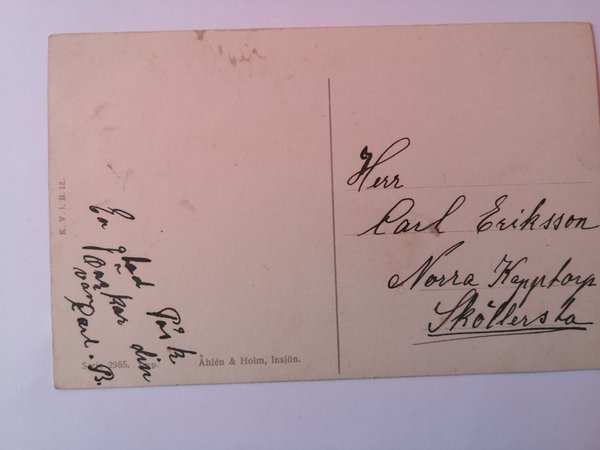 K. V. I. B. 12.
En glad Påsk
önskar din
vän
Carl. B.
2985.
Åhlén & Holm, Insjön.
Herr
Carl Eriksson
Norra Kepptorp
Sköllersta